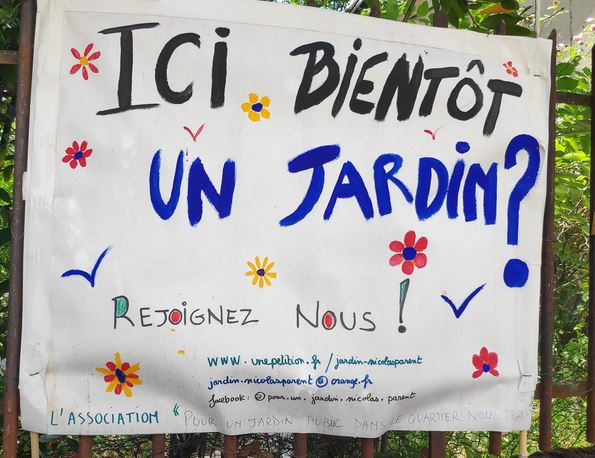 ICI BIENTÔT
UN JARDIN?
REJOIGNEZ NOUS !
www.unepetition.fr/jardin-nicolasparent
jardin-nicolasparent@orange.fr
facebook: @pour.un.jardin.nicolas.parent
L'ASSOCIATION "POUR UN JARDIN PUBLIC DANS LE QUARTIER NICOLAS PARENT